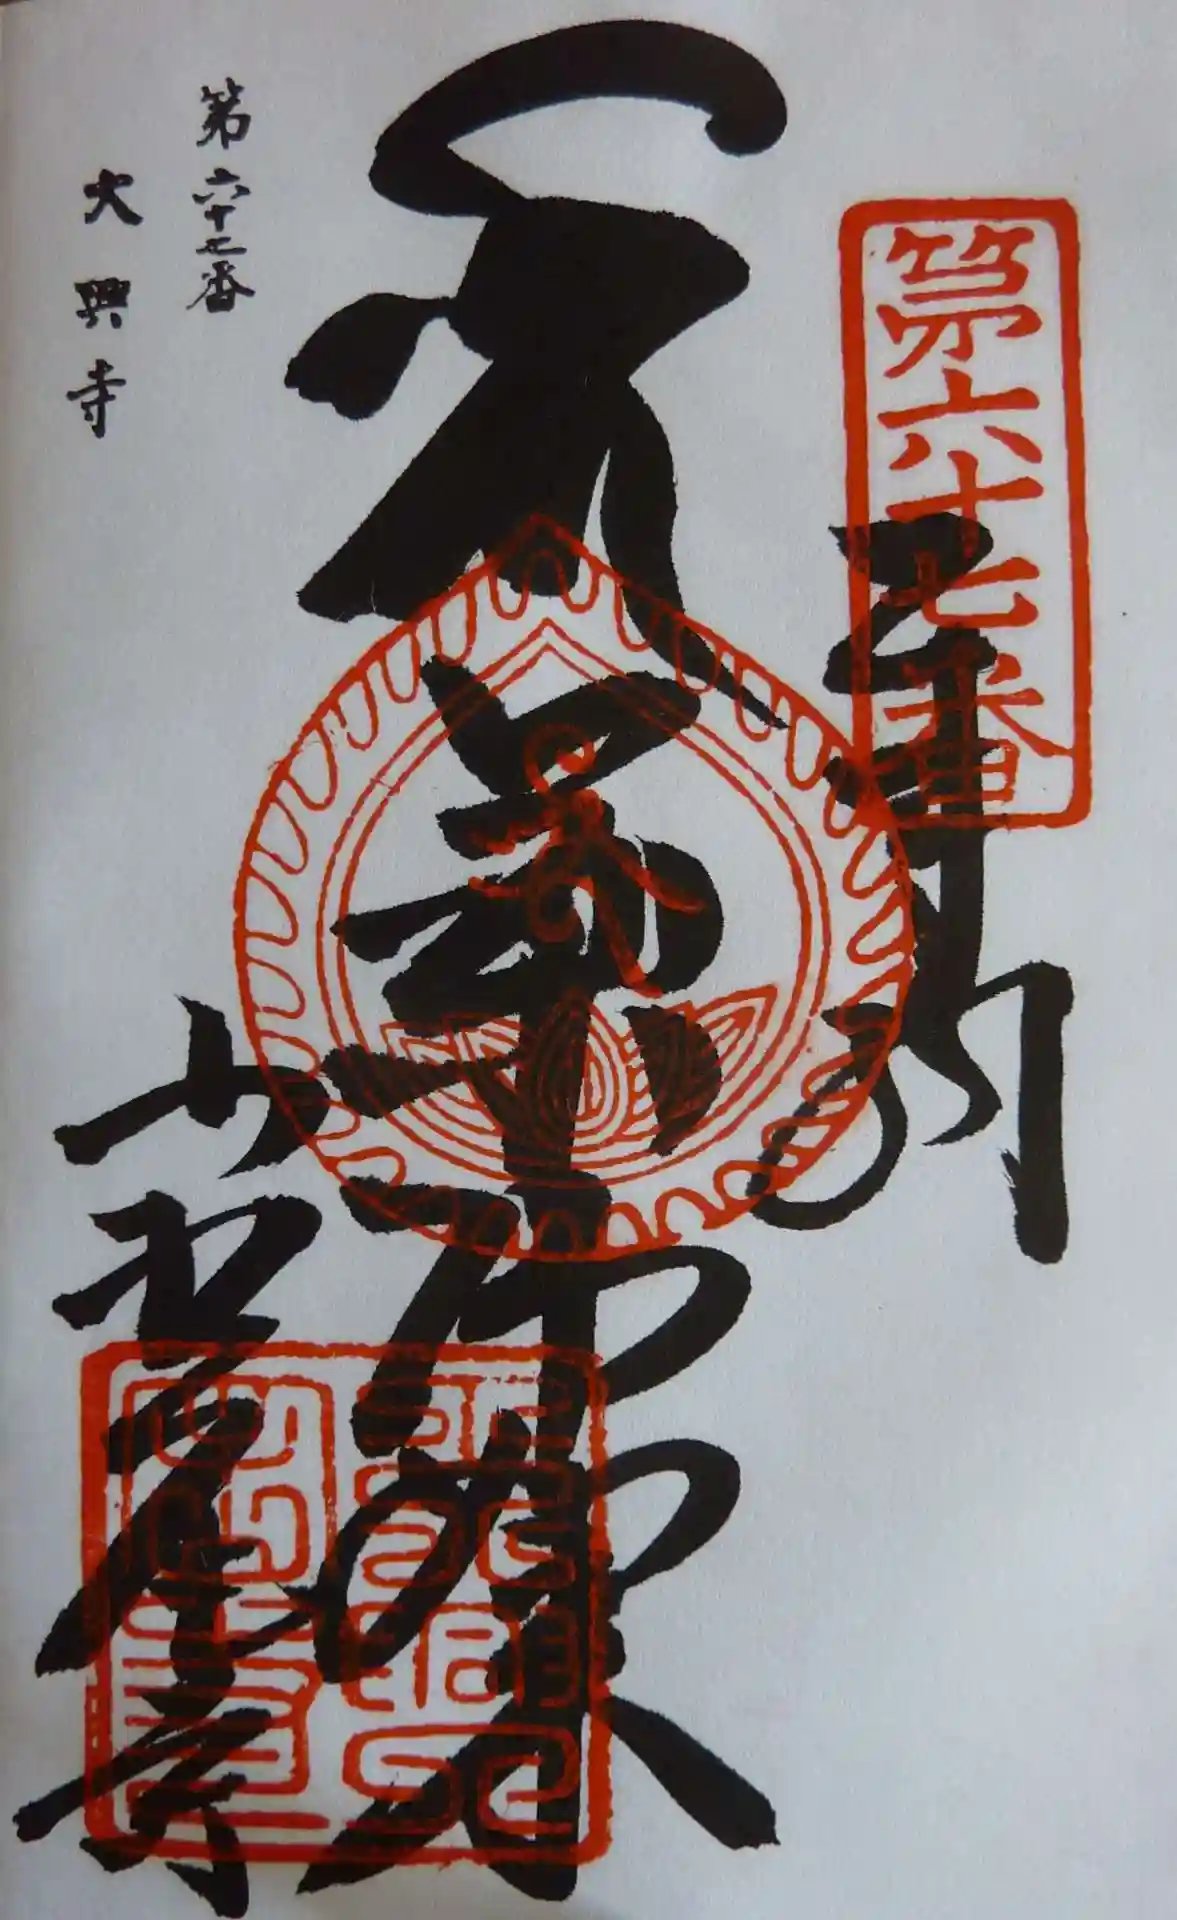 第六十七番
奉納
薬師如来
小松尾寺
第六十七番
大興寺